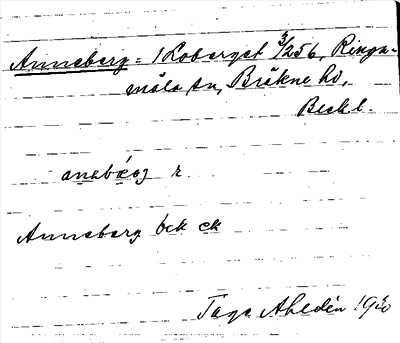 Anneberg = 1 Loberget 3/256, Ringa-
måla sn, Bräkne hd,
Blekl.
anəbærj r
Anneberg bck ek
Tage Ahldén 1940